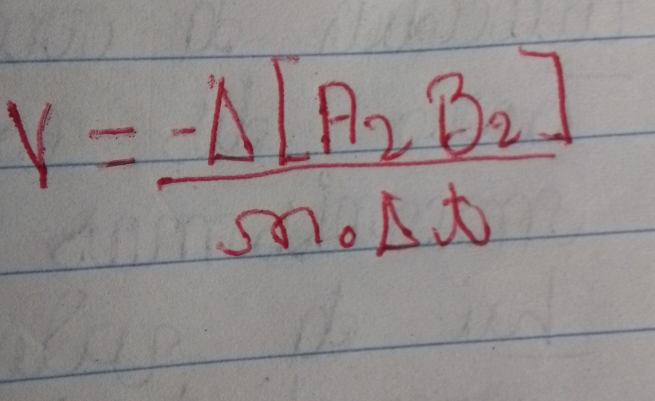 V = -Δ[A₂B₂]
m.Δt